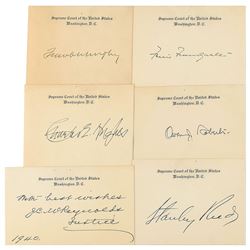 Supreme Court of the United States
Washington, D.C.
Frank Murphy
Supreme Court of the United States
Washington, D.C.
Felix Frankfurter
Supreme Court of the United States
Washington, D.C.
Charles E Hughes
Supreme Court of the United States
Washington, D.C.
Owen J Roberts
Supreme Court of the United States
Washington, D.C.
With best wishes
J.C. McReynolds
Justice
1940.
Supreme Court of the United States
Washington, D.C.
Stanley Reed